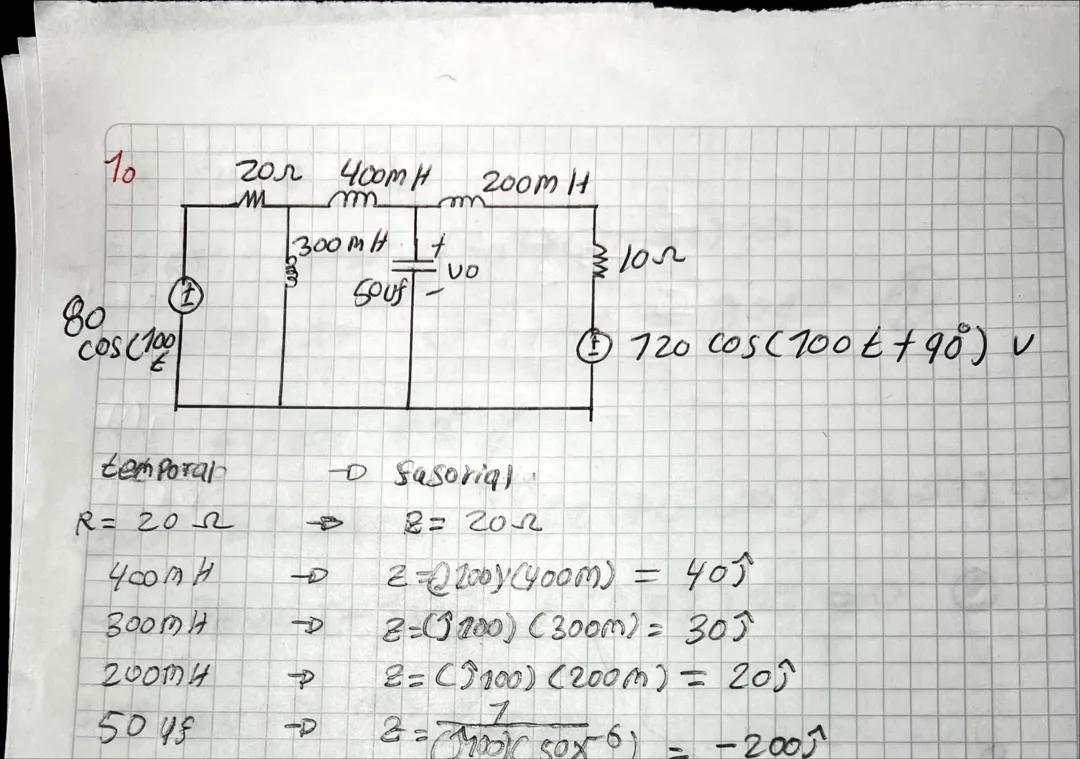 1.
20Ω 400mH 200mH
300mH + 10Ω
50uf vo
-
80
cos(100
t
120 cos(100t+90°) v
temporal → fasorial
R= 20 Ω → Z= 20Ω
400mH → Z=(j100)(400m) = 40j
300mH → Z=(j100)(300m)= 30j
200mH → Z=(j100)(200m) = 20j
50 uf → Z= 1
(j100)(50x-6) = -200j